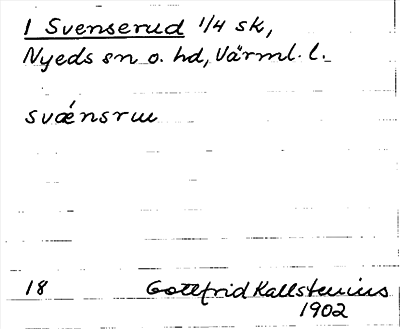 1 Svenserud 1/4 sk,
Nyeds sn o. hd, Värml. l.
svǽnsrɯ
18 Gottfrid Kallstenius
1902